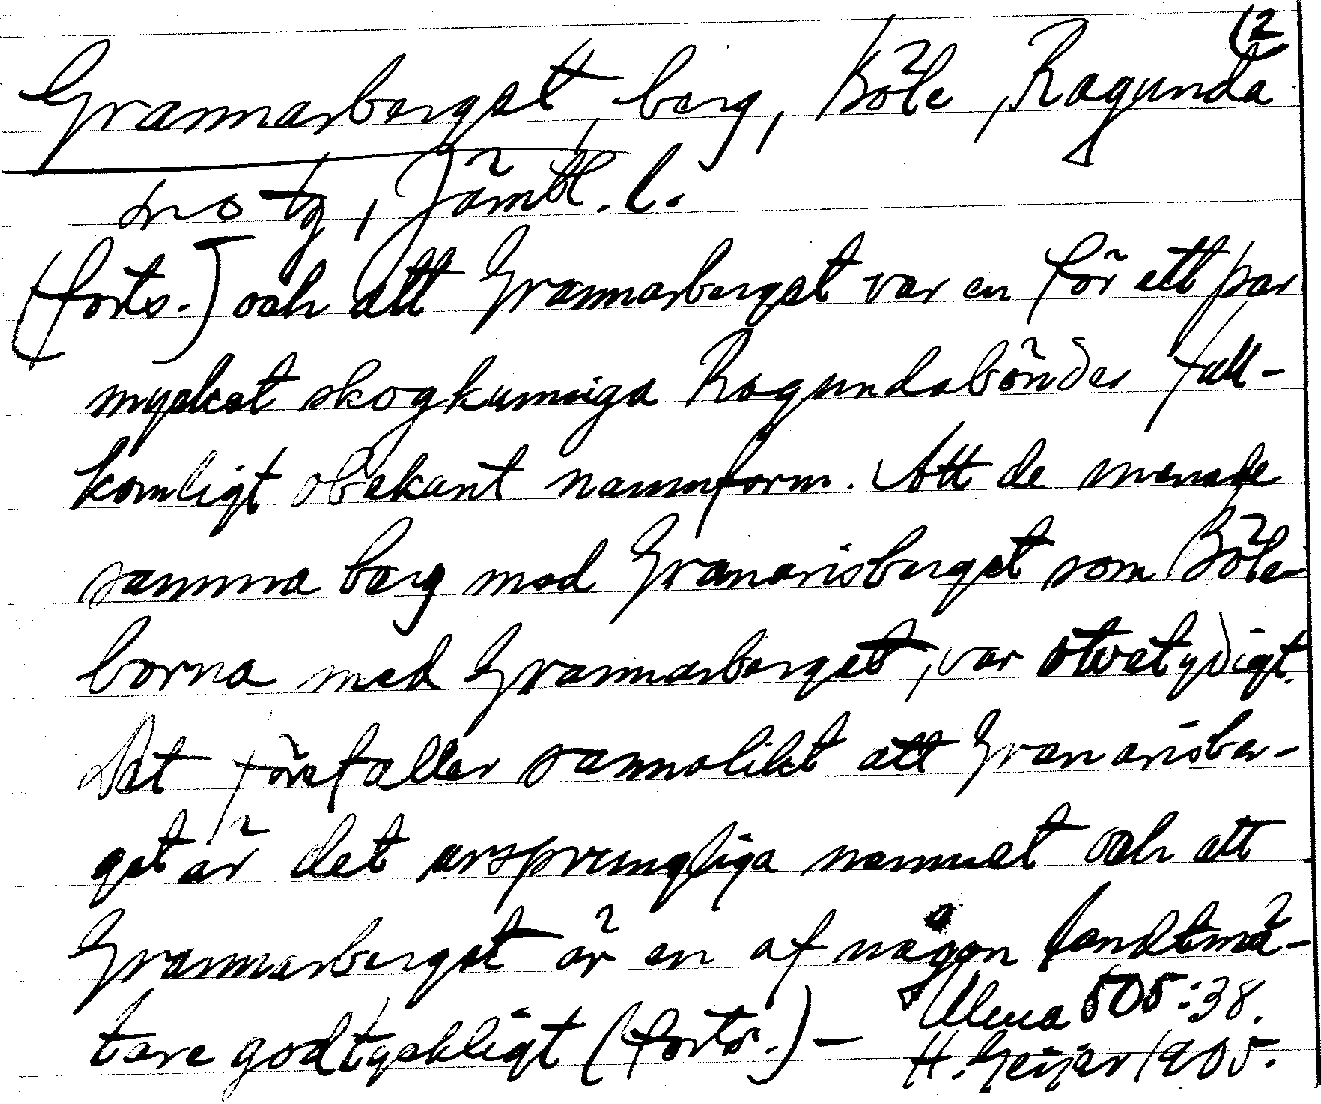 (2
Grannarberget, berg, Böle, Ragunda
sn o tg, Jämtl. l.
(forts.) och att Grannarberget var en för ett par
mycket skogkunniga Ragundabönder full-
komligt obekant namnform. Att de menade
samma berg med Granarisberget som Böle-
borna med Grannarberget, var otvetydigt.
Det förefaller sannolikt att Granarisber-
get är det ursprungliga namnet och att
Grannarberget är en af någon landtmä-
tare godtyckligt (forts.) –
Ulma 505:38.
H. Geijer 1905.